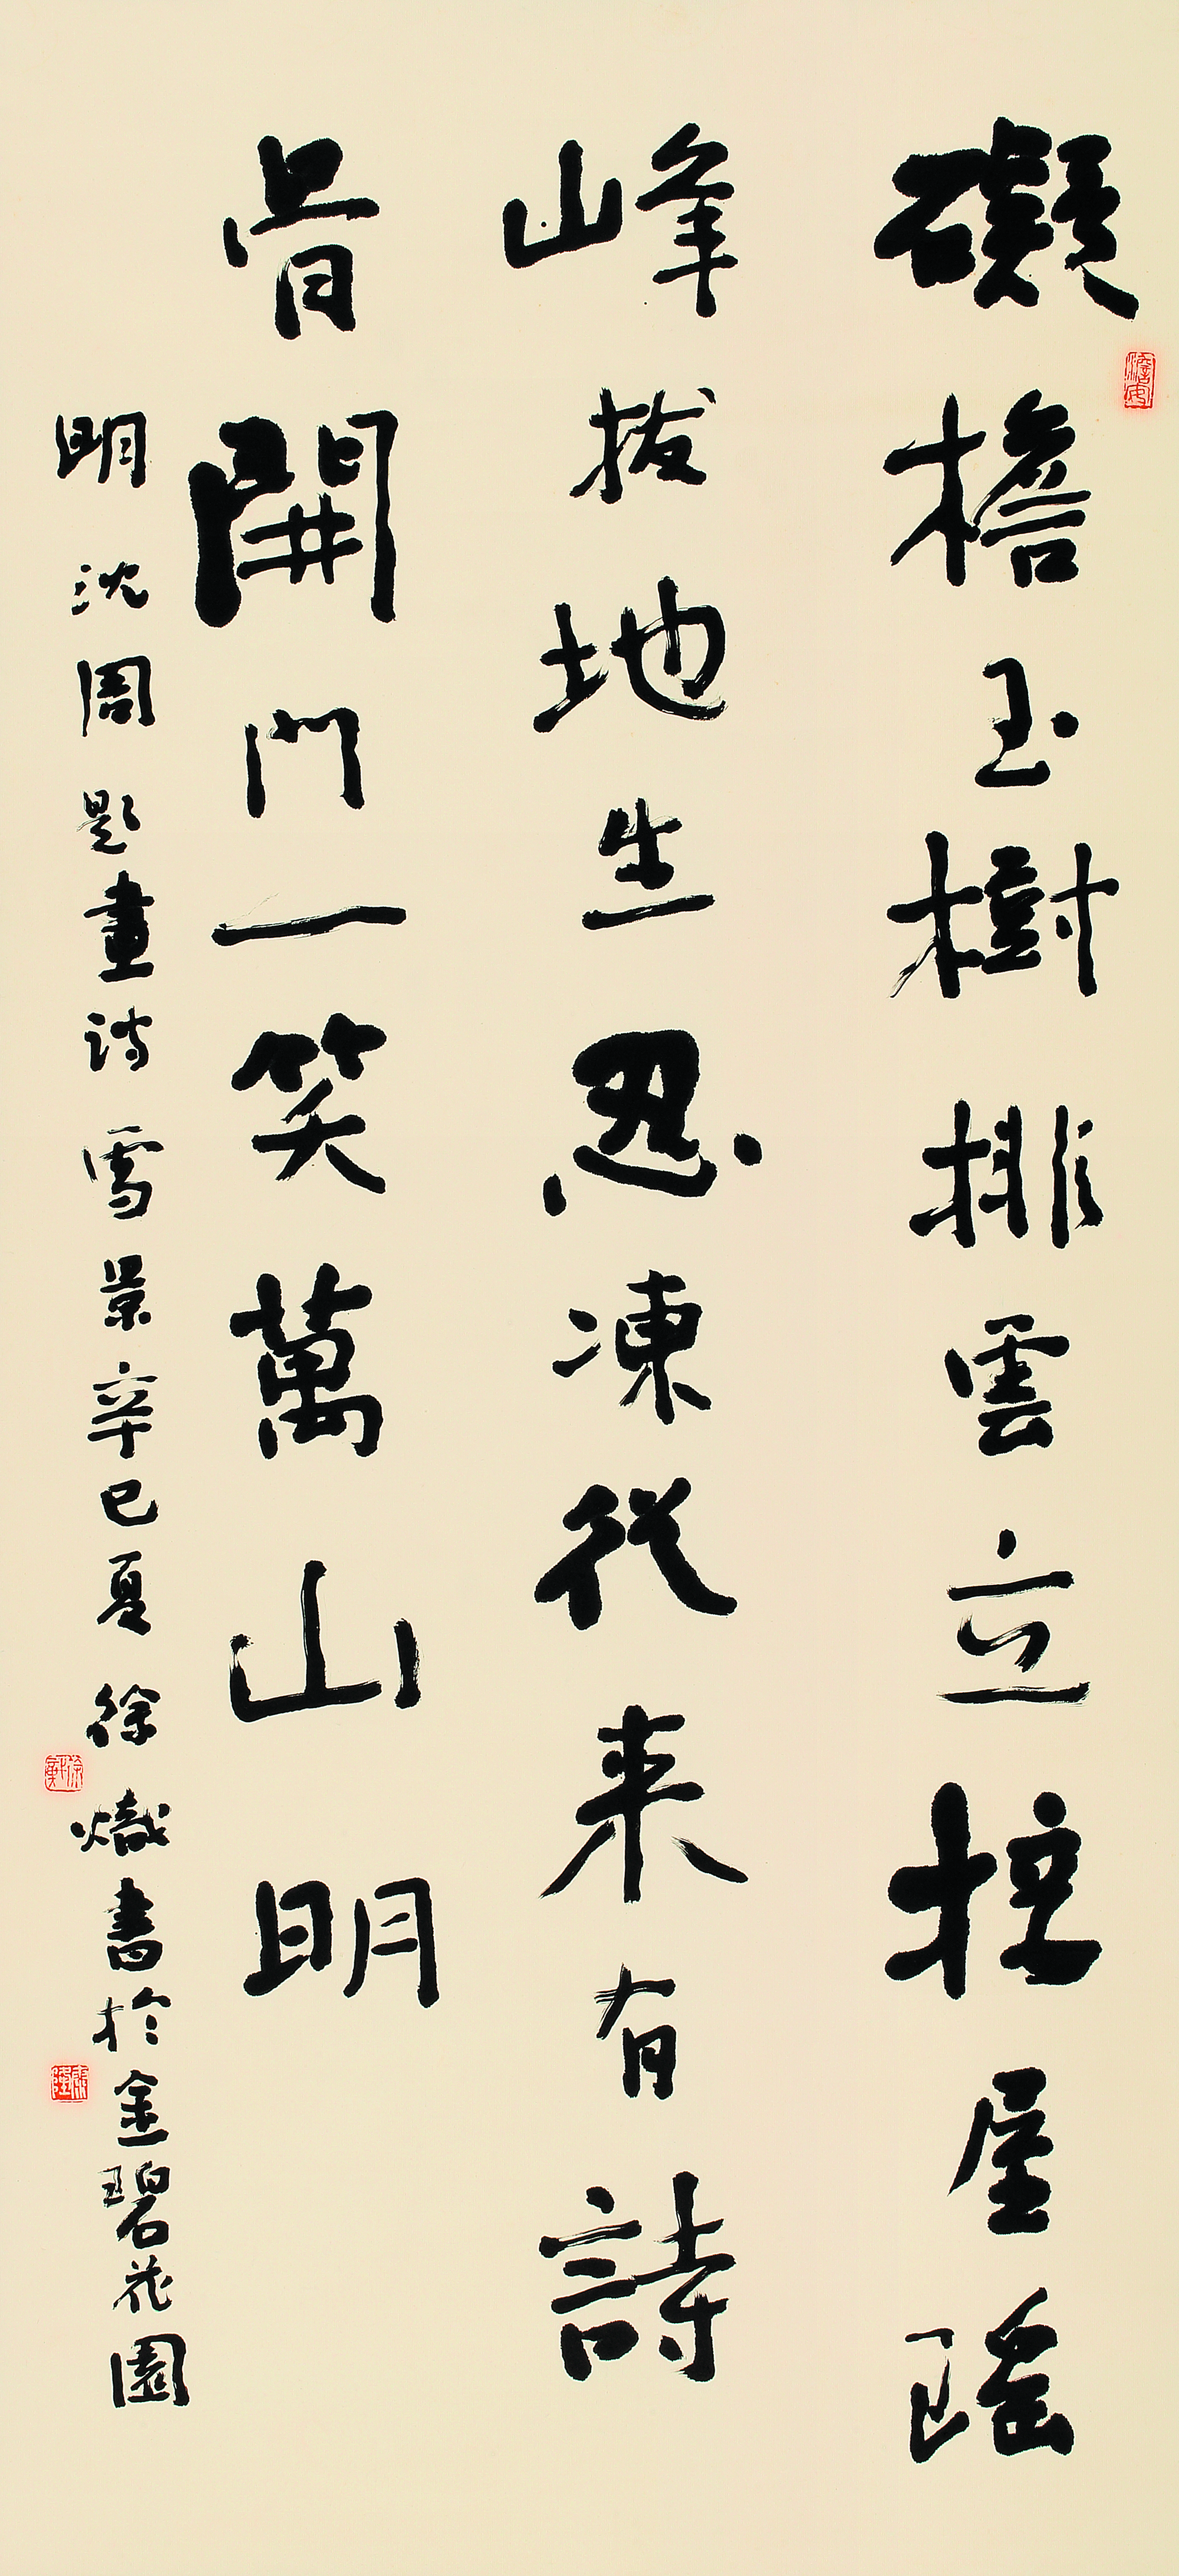 礙檐玉樹排雲立拄屋瑤
峰拔地生忍凍從来有詩
骨開門一笑萬山明
明沈周題畫詩雪景辛巳夏徐熾書於金碧花園